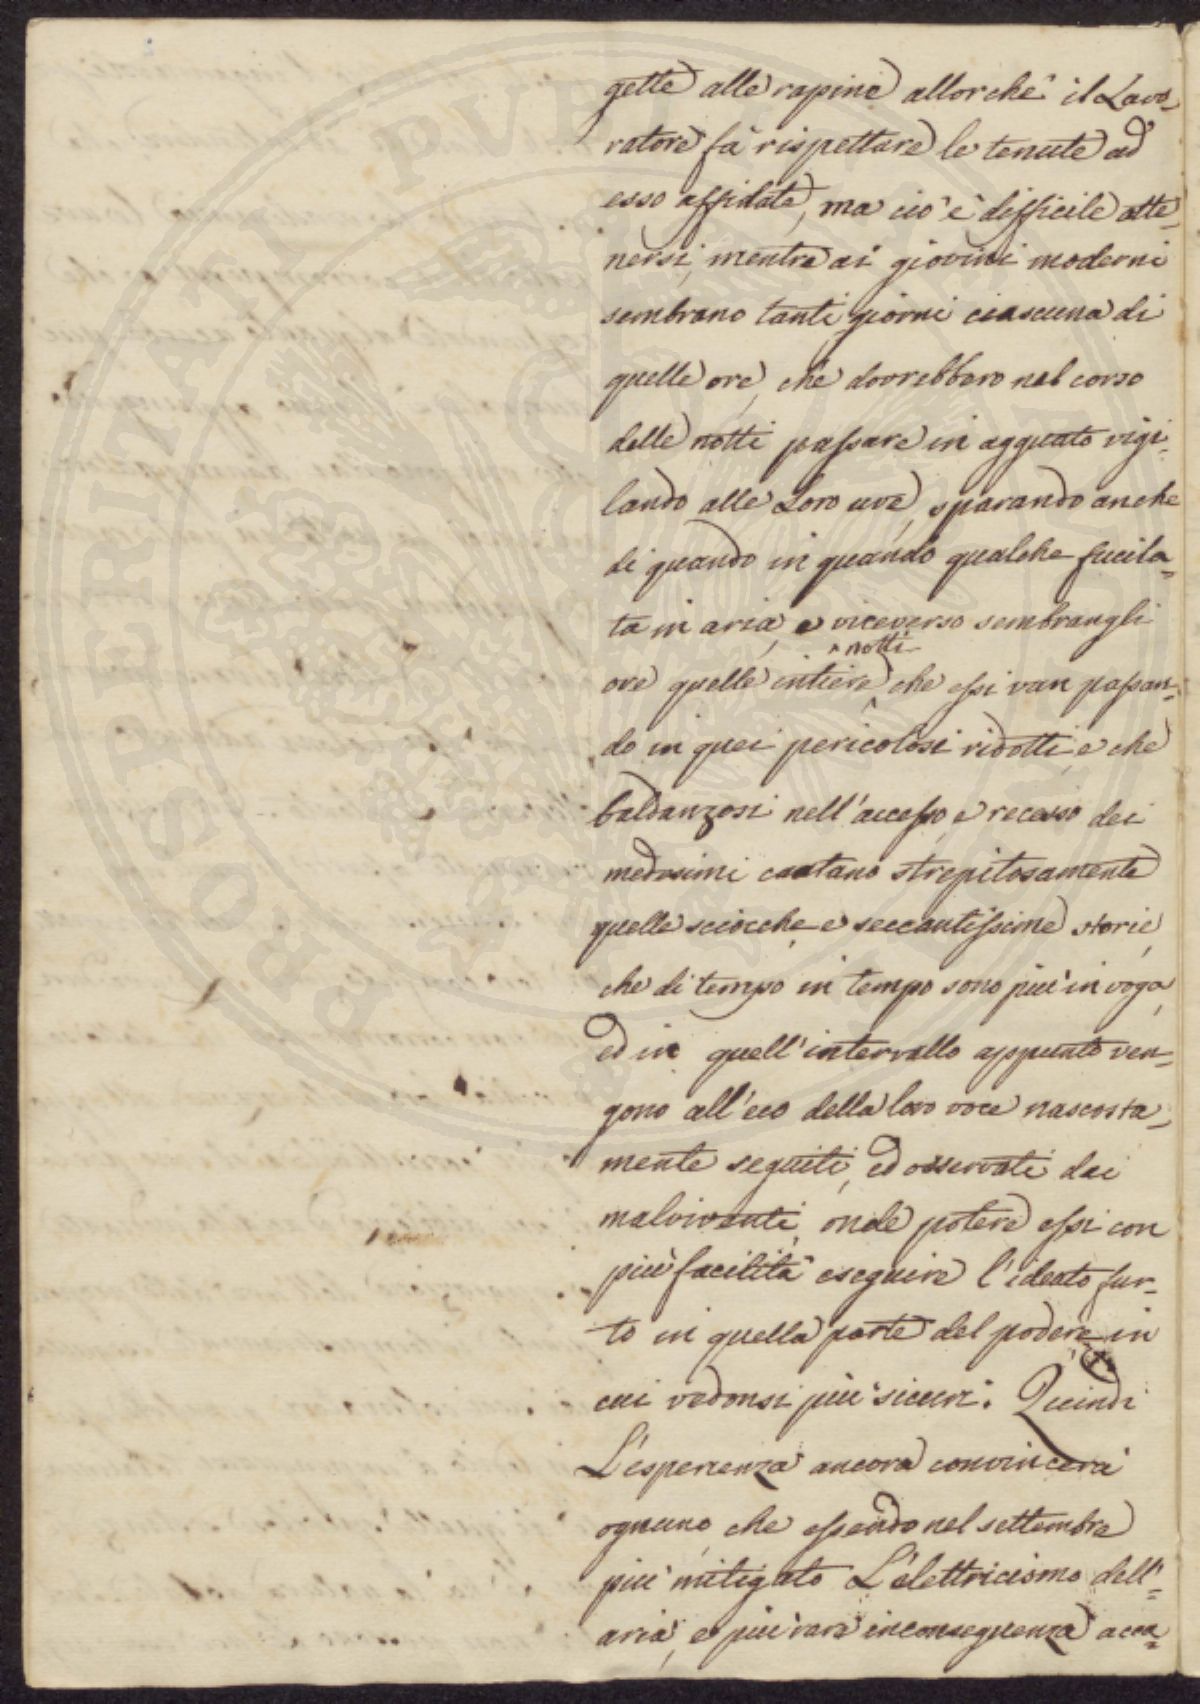 gette alle rapine allorchè il Lavo-
ratore fà rispettare le tenute ad
esso affidate, ma ciò è difficile otte-
nersi, mentre ai giovini moderni
sembrano tanti giorni ciascuna di
quelle ore, che dovrebbero nel corso
delle notti passare in agguato vigi-
lando alle Loro uve, sparando anche
di quando in quando qualche fucila-
ta in aria, e viceverso sembrangli
notti
ore quelle intiere, che essi van passan-
do in quei pericolosi ridotti, e che
baldanzosi nell'accesso, e recesso dei
medesimi cantano strepitosamente
quelle sciocche e seccantissime storie,
che di tempo in tempo sono più in voga,
ed in quell'intervallo appunto ven-
gono all'eco della loro voce nascosta-
mente seguiti, ed osservati dai
malviventi, onde potere essi con
più facilità eseguire l'ideato fur-
to in quella parte del podere in
cui vedonsi più sicuri. Quindi
L'esperienza ancora convincerà
ognuno, che essendo nel settembre
più mitigato L'elettricismo dell'
aria, e più rare inconseguenza acca-
PROSPERITATI PVBLICAE